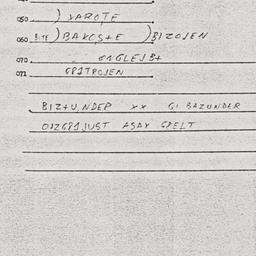 050 ) XAROTE
060 BITE ) BAKOS+E ) BIZOJEN
070 ONGLEJB+
071 G81TROJEN
BIZ+U,NDER xx GI BAZUNDER
OIZG81JUST ASAY SPELT